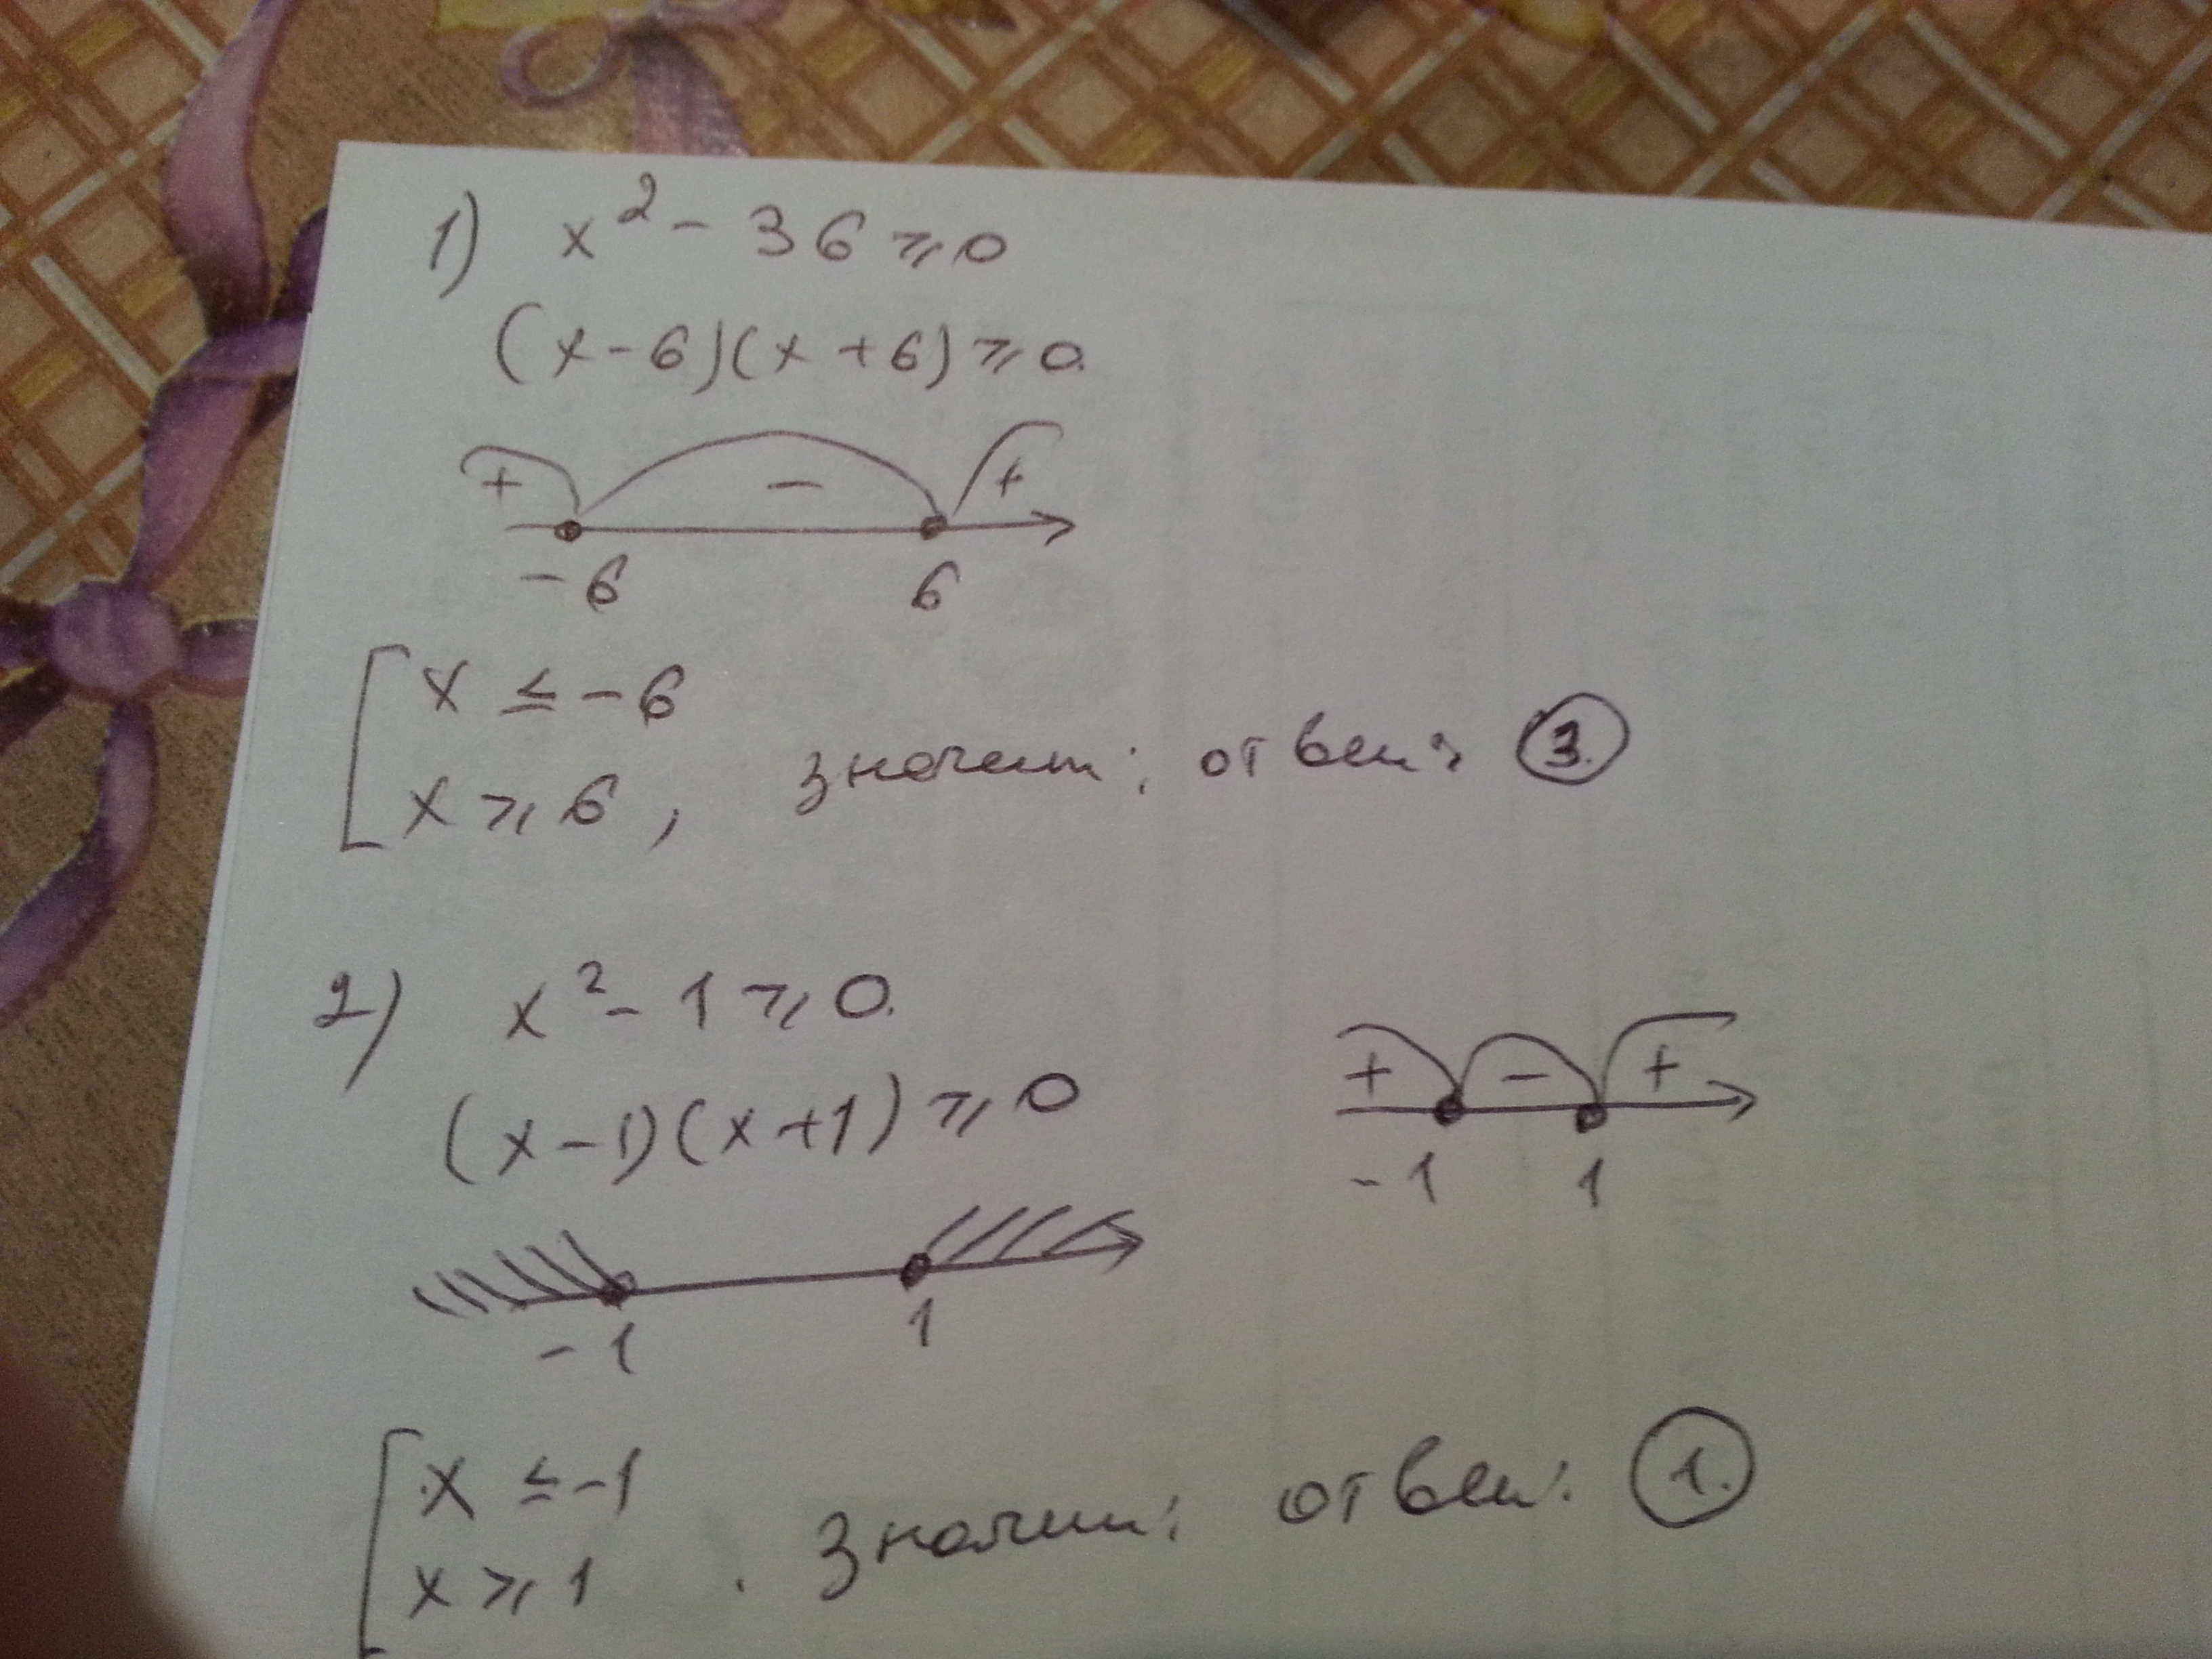 1) x² - 36 ⩾ 0
(x-6)(x+6) ⩾ 0.
+ - +
-6 6
[ x ≤ -6
x ⩾ 6, значит: ответ: 3.
2) x² - 1 ⩾ 0.
+ - +
(x-1)(x+1) ⩾ 0
-1 1
-1 1
[ x ≤ -1
x ⩾ 1. Значит: ответ: 1.